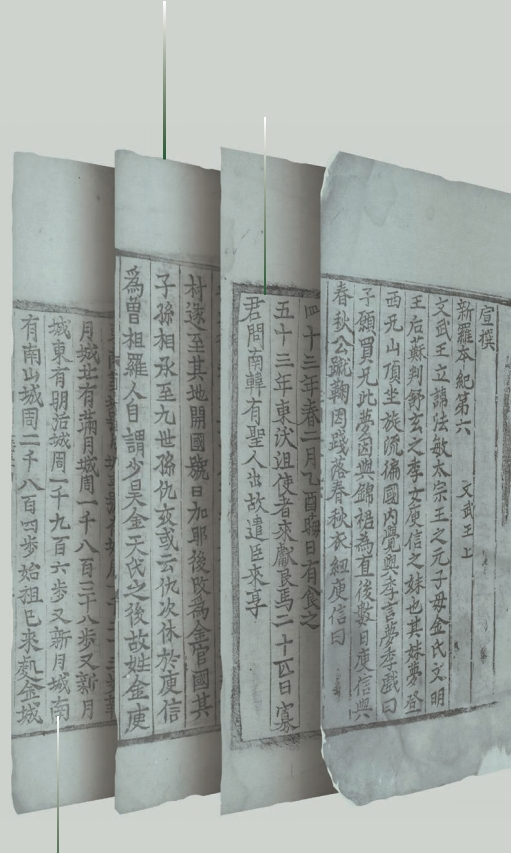 宣撰
新羅本紀第六 文武王上
文武王立諱法敏太宗王之元子母金氏文明
王后蘇判舒玄之季女庾信之妹也其姊夢登
西兄山頂坐旋流徧國內覺與季言夢季戲曰
予願買兄此夢因與錦裙爲直後數日庾信與
春秋公蹴鞠因踐落春秋衣紐庾信曰
四十三年春二月乙酉晦日有食之
五十三年東沃沮使者來獻良馬二十匹曰寡
君聞南韓有聖人出故遣臣來享
村遂至其地開國號曰加耶後改爲金官國其
子孫相承至九世孫仇亥或云仇次休於庾信
爲曾祖羅人自謂少昊金天氏之後故姓金庾
月城北有滿月城周一千八百三十八步又新月
城東有明活城周一千九百六步又新月城南
有南山城周二千八百四步始祖已來處金城